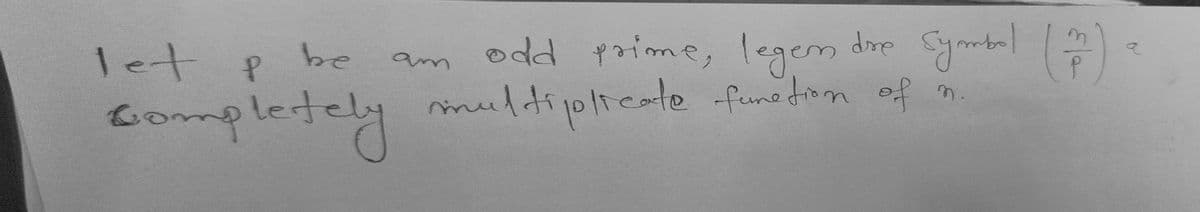 let p be an odd prime, legen dre Symbol (n/p) a
completely multiplicate function of n.